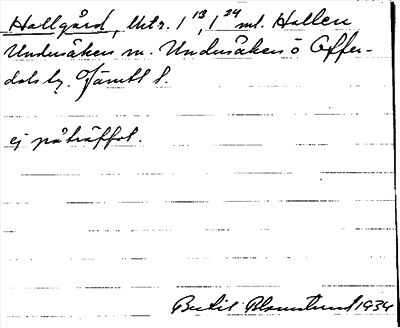 Hallgård, lktr. 1¹³, 1²⁴ ml. Hallen
Undersåkers m. Undersåkers o Offer-
dals tg. Jämtl l.
ej påträffat.
Bertil Blomstrand 1934